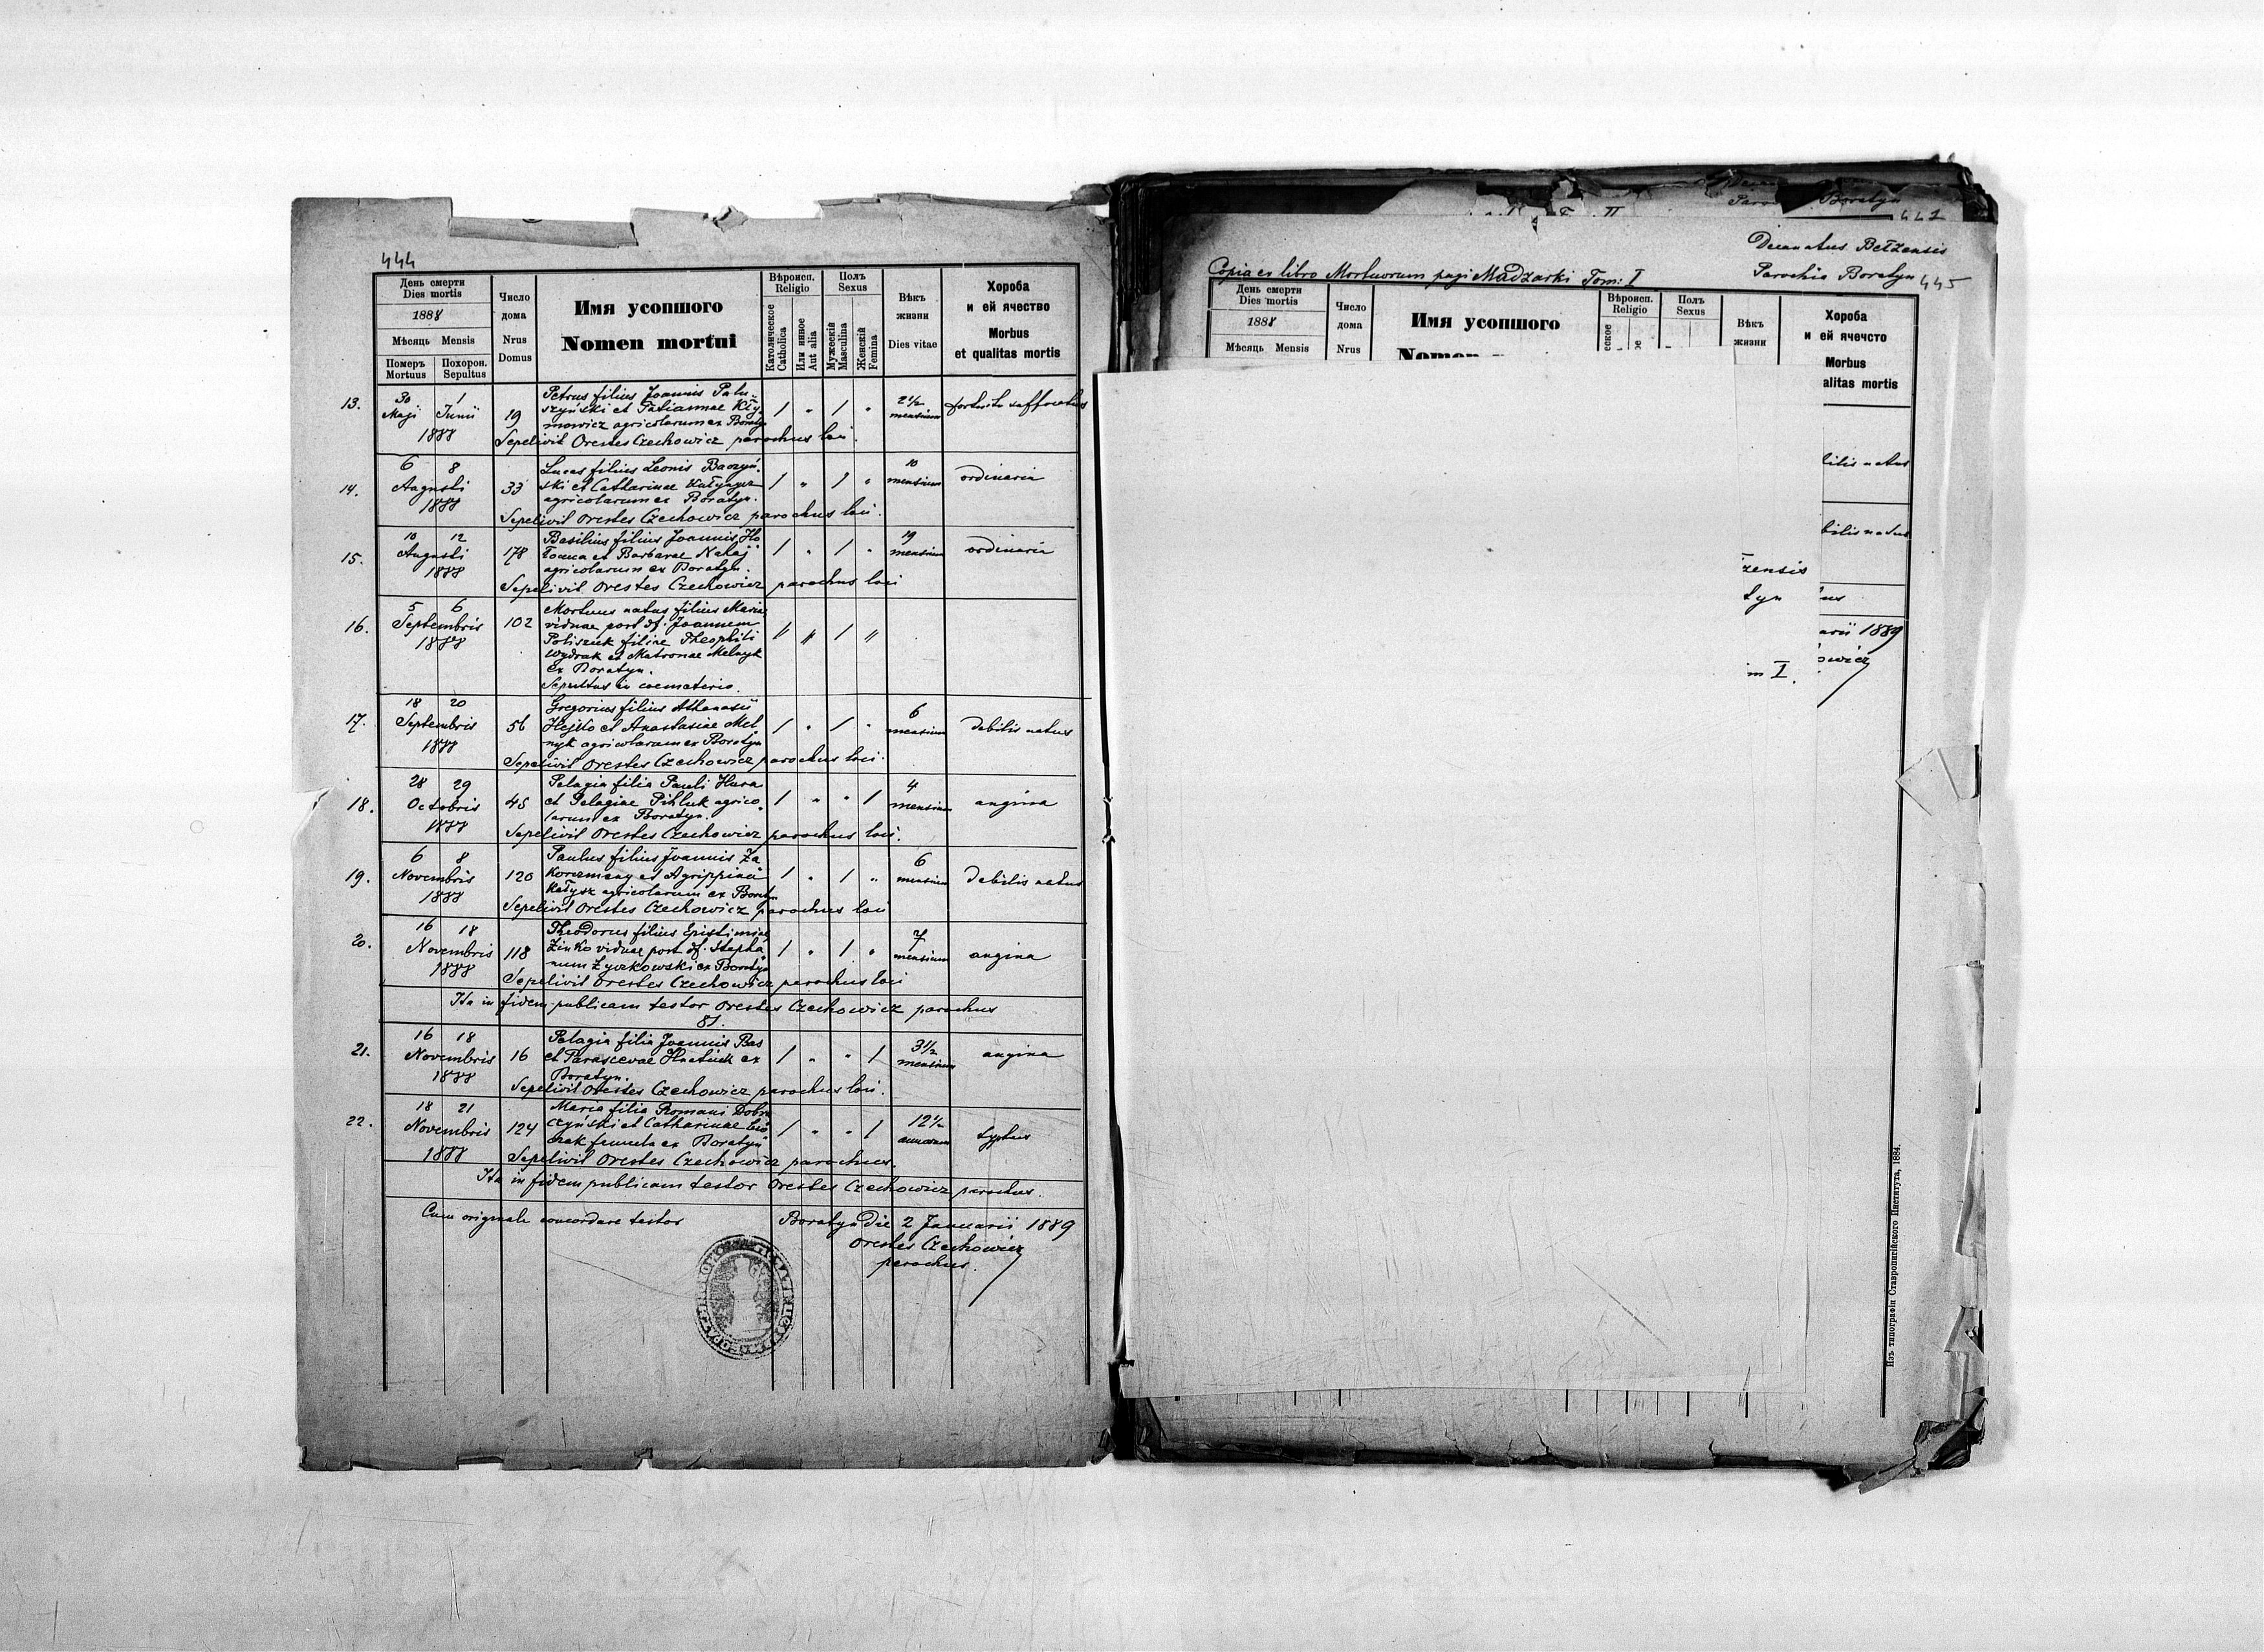 444
День смерти
Dies mortis
1888
Мѣсяць Mensis
Померъ Mortuus
Похорон. Sepultus
Число дома
Nrus Domus
Имя усопшого
Nomen mortui
Вѣроисп.
Religio
Католическое Catholica
Или инное Aut alia
Полъ
Sexus
Мужескій Masculina
Женскій Femina
Вѣкъ жизни
Dies vitae
Хороба
и ей ячество
Morbus
et qualitas mortis
13. 30 Maji 1 Junii 1888
19
Petrus filius Joannis Palu-
szyński et Tatiannae Kły-
mowicz agricolarum ex Boratyn
2 1/2 mensium
fortuito suffocatus
Sepelivit Orestes Czechowicz parochus loci.
14. 6 8 Augusti 1888
33
Lucas filius Leonis Baczyń-
ski et Catharinae
agricolarum ex Boratyn.
10 mensium
ordinaria
Sepelivit Orestes Czechowicz parochus loci.
15. 10 12 Augusti 1888
178
Basilius filius Joannis Ho
łowna et Barbarae Nakaj
agricolarum ex Boratyn.
19 mensium
ordinaria
Sepelivit Orestes Czechowicz parochus loci
16. 5 6 Septembris 1888
102
Mortuus natus filius Mariae
viduae post df. Joannem
Poliszuk filiae Theophili
Wydrak et Matronae Melnyk
ex Boratyn.
Sepultus in coemeterio.
17. 18 20 Septembris 1888
56
Gregorius filius Athanasii
Hejko et Anastasiae Mel
nyk agricolarum ex Boratyn
6 mensium
debilis natus
Sepelivit Orestes Czechowicz parochus loci.
18. 28 29 Octobris 1888
45
Pelagia filia Pauli Hura
et Pelagiae Pihluk agrico
larum ex Boratyn.
4 mensium
angina
Sepelivit Orestes Czechowicz parochus loci.
19. 6 8 Novembris 1888
120
Paulus filius Joannis Za
korczmeny et Agrippinae
Kałysz agricolarum ex Boratyn
6 mensium
debilis natus
Sepelivit Orestes Czechowicz parochus loci
20. 16 18 Novembris 1888
118
Theodorus filius Epistimiae
Zinko viduae post df. Stepha
num Zyczkowski ex Boratyn
7 mensium
angina
Sepelivit Orestes Czechowicz parochus loci
Ita in fidem publicam testor Orestes Czechowicz parochus
81.
21. 16 18 Novembris 1888
16
Pelagia filia Joannis Bas
et Parascevae Hnatiuk ex
Boratyn.
3 1/2 mensium
angina
Sepelivit Orestes Czechowicz parochus loci.
22. 18 21 Novembris 1888
124
Maria filia Romani Dobro
czyński et Catharinae
famula ex Boratyn
12 1/2 annorum
typhus
Sepelivit Orestes Czechowicz parochus.
Ita in fidem publicam testor Orestes Czechowicz parochus.
Cum originale concordare testor
Boratyn die 2 Januarii 1889
Orestes Czechowicz
parochus.
Boratyn
441
Decanatus Bełzensis
Parochia Boratyn 445
Copia ex libro Mortuorum pagi Madzarki Tom: I
День смерти
Dies mortis
1888
Мѣсяць Mensis
Число
дома
Nrus
Имя усопшого
Nomen
Вѣроисп.
Religio
Полъ
Sexus
Вѣкъ
жизни
Хороба
и ей яччсто
Morbus
alitas mortis
ilis natus
bilis natus
zensis
tyn
us
arii 1889
owicz
m I.
Изъ типографіи Ставропигійского Института, 1884.